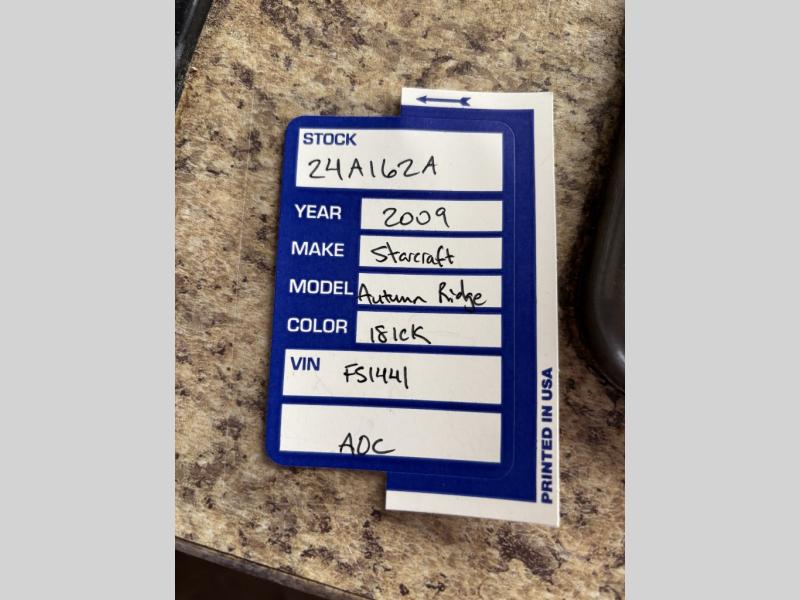 STOCK
24A162A
YEAR 2009
MAKE Starcraft
MODEL Autumn Ridge
COLOR 181CK
VIN FS1441
AOC
PRINTED IN USA